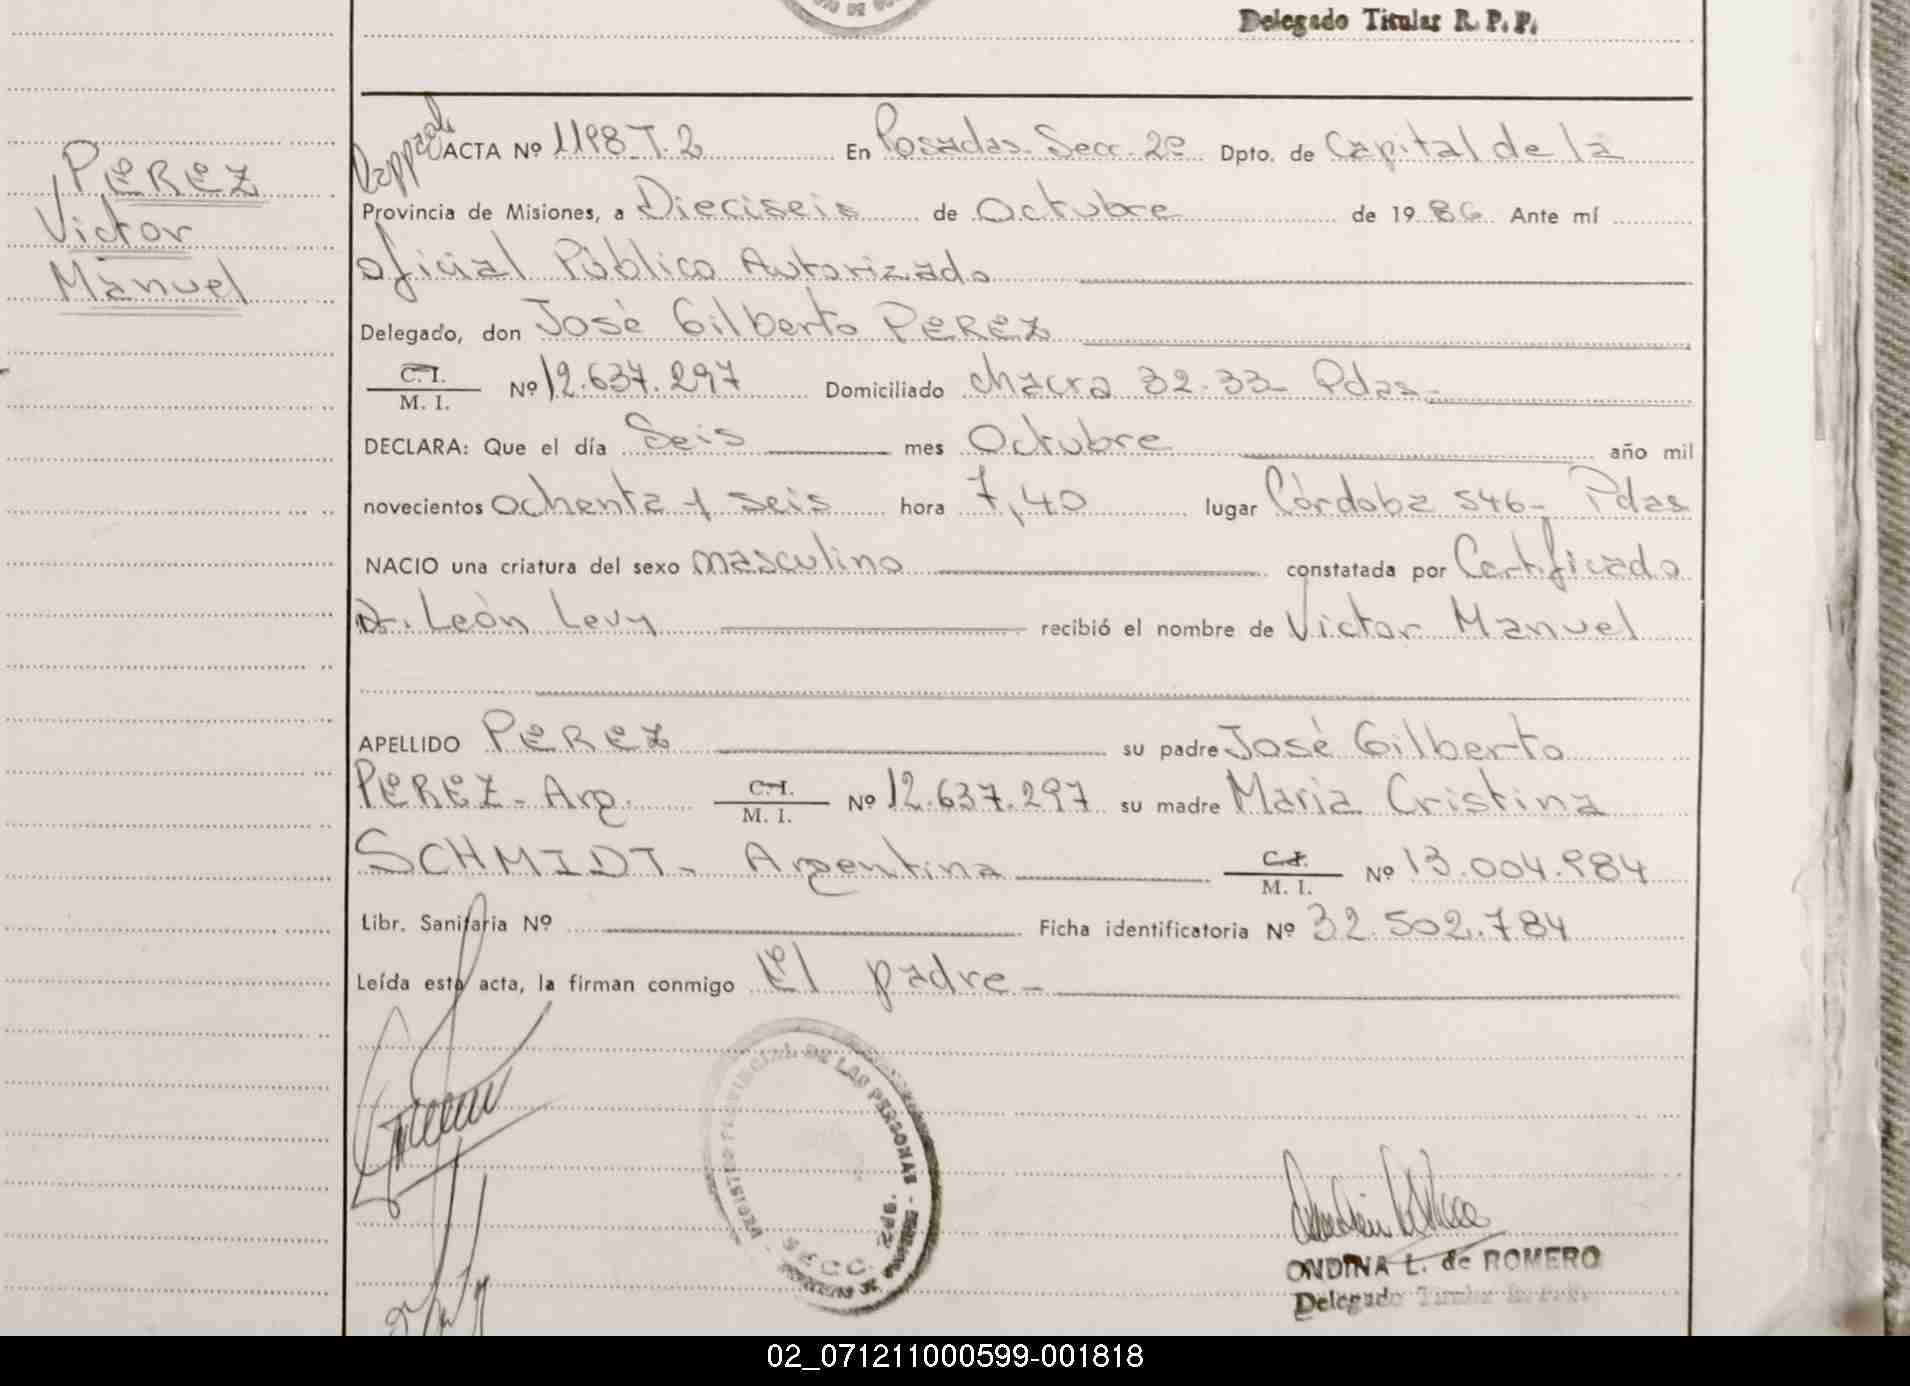 Delegado Titular R. P. P.
PEREZ
Victor
Manuel
ACTA Nº 1198 T. 2 En Posadas Secc. 2º Dpto. de Capital de la
Provincia de Misiones, a Dieciseis de Octubre de 1986 Ante mí
oficial Público Autorizado
Delegado, don José Gilberto PEREZ
C. I.
M. I. Nº 12.637.297 Domiciliado chacra 32.33 Pdas
DECLARA: Que el día Seis mes Octubre año mil
novecientos ochenta y seis hora 7,40 lugar Córdoba 546- Pdas
NACIO una criatura del sexo masculino constatada por Certificado
Dr. León Levy recibió el nombre de Victor Manuel
APELLIDO PEREZ su padre José Gilberto
PEREZ - Arg. C. I.
M. I. Nº 12.637.297 su madre Maria Cristina
SCHMIDT - Argentina C. I.
M. I. Nº 13.004.984
Libr. Sanitaria Nº Ficha identificatoria Nº 32.502.784
Leída esta acta, la firman conmigo El padre -
REGISTRO PROVINCIAL DE LAS PERSONAS
SECC.
ONDINA L. de ROMERO
Delegado Titular
02_071211000599-001818